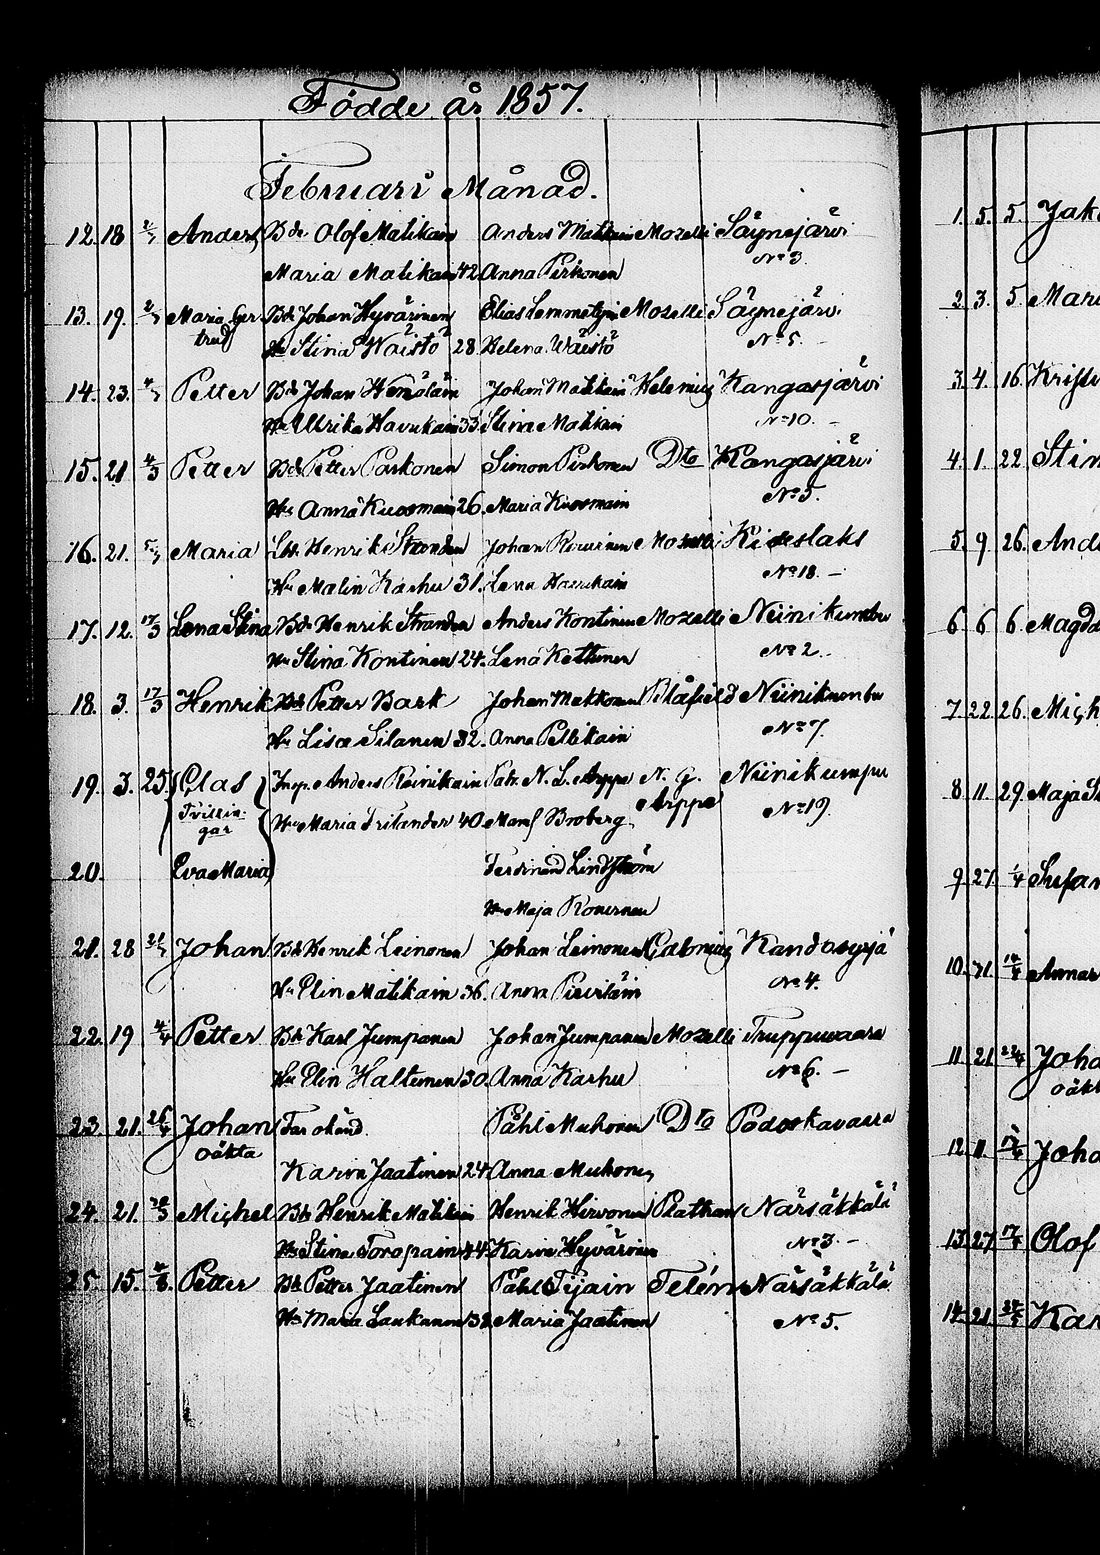 Födde år 1857.
Februari Månad.
12. 18 2/3 Anders Bde Olof Matikain Anders Matikain Mozelli Säynejärvi
Maria Matikain 42 Anna Pirhonen No 3
13. 19. 2/3 Maria Ger- Bde Johan Hyvärinen Elias Lemmetyin Mozelli Säynejärvi
trud Hu Stina Waistö 28 Helena Wäistö No 5. -
14. 23. 4/3 Petter Bde Johan Wenäläin Johan Matikain Helenius Kangasjärvi
Hu Ullrika Havukain 33 Stina Matikain No 10. -
15. 21 4/3 Petter Bde Petter Parkonen Simon Pirhonen Dto Kangasjärvi
Hu Anna Kuosmain 26. Maria Kuosmain No 5.
16. 21. 5/3 Maria Henrik Stranden Johan Mozelli Kideslaks
Hu Malin Karhu 31. Lena No 18. -
17. 12. 17/3 Lena Stina Bde Henrik Stranden Anders Kontinen Mozelli Niinikumbu
Hu Stina Kontinen 24. Lena Kettunen No 2. -
18. 3. 17/3 Henrik Bde Petter Bark Johan Makkonen Blåfield Niinikumbu
Hu Lisa Silanen 32. Anna Pellikain No 7
19. 3. 25/3 Clas Insp. Anders Reinikain Patr. N. L. Arppe N. G. Niinikumpu
Tvillin- Hu Maria Frilander 40 Mams Broberg Arppe No 19.
gar
20. Eva Maria Ferdinand Lindström
Hu Maja Ronernen
21. 28 31/3 Johan Bde Henrik Leinonen Johan Leinonen Calonius Kandosyrjä
Hu Elin Matikain 36. Anna Pieviläin No 4.
22. 19 4/4 Petter Bde Karl Jumpanen Johan Jumpanen Mozelli Truppuwaara
Hu Elin Haltunen 30. Anna Karhu No 6. -
23. 21. 26/4 Johan Far okänd. Påhl Muhonen Dto Podoskavaara
oäkta Karin Jaatinen 24 Anna Muhonen
24. 21. Michel Bde Henrik Matikain Henrik Hirvonen Plathan Närsäkkälä
Hu Stina Toropain 44 Karin Hyvärinen No 3. -
25. 15. Petter Bde Petter Jaatinen Påhl Tijain Telén Närsäkkälä
Hu Maria Laukanen 32 Maria Jaatinen No 5.
1. 5. 5.
2. 3. 5.
3. 4. 16.
4. 1. 22.
5. 9 26.
6 6 6.
7 22 26.
8 11. 29.
9. 27
10. 21
11. 21
12. 11.
13. 27 Olof
14. 21